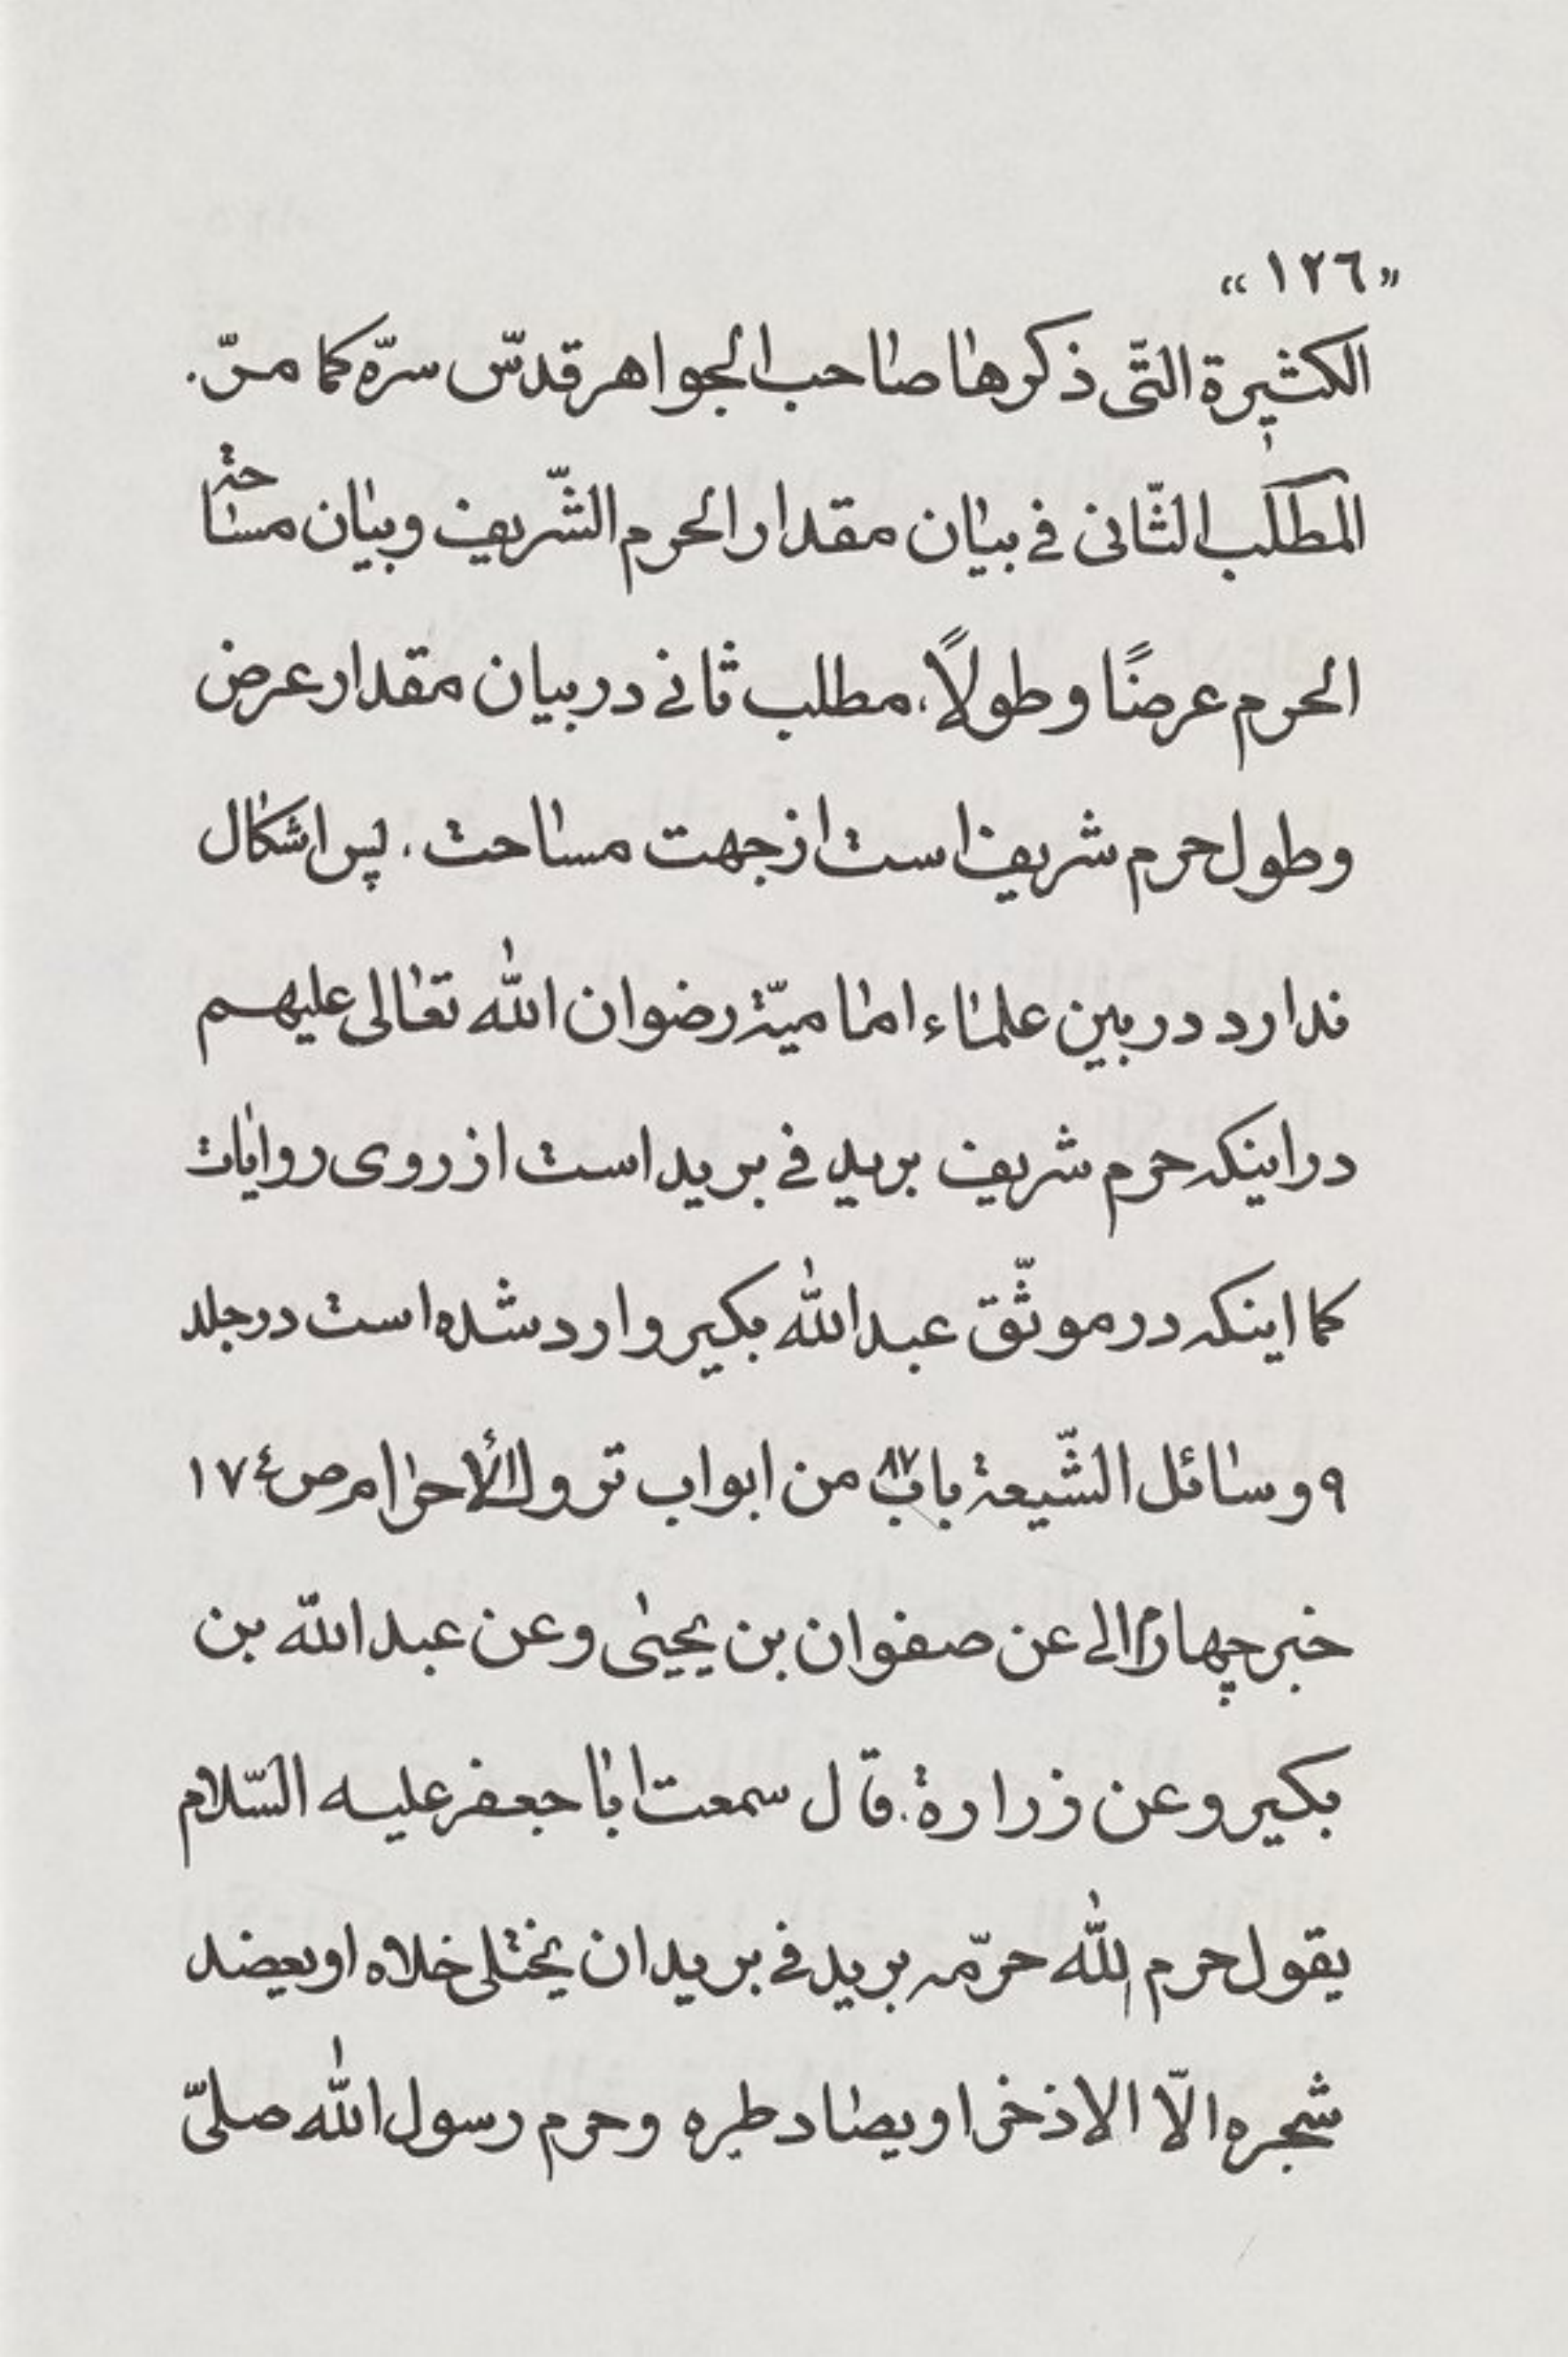 «١٢٦»
الكثيرة التّى ذكرها صاحب الجواهر قدسّ سرّه كما مرّ.
المطلب الثّانى فى بيان مقدار الحرم الشّريف وبيان مساحة
الحرم عرضًا وطولًا، مطلب ثانى در بيان مقدار عرض
وطول حرم شريف است از جهت مساحت. پس اشكال
ندارد در بين علماء اماميّة رضوان الله تعالى عليهم
در اينكه حرم شريف بريد فى بريد است از روى روايات
كما اينكه در موثّق عبد الله بكير وارد شده است در جلد
٩ وسائل الشّيعة باب ٨٧ من ابواب تروك الأحرام ص ١٧٤
خبر چهارم الى عن صفوان بن يحيى وعن عبد الله بن
بكير وعن زرارة. قال سمعت ابا جعفر عليه السّلام
يقول حرم الله حرّمه بريد فى بريد ان يختلى خلاه او يعضد
شجره الّا الاذخر او يصاد طيره وحرم رسول الله صلّى